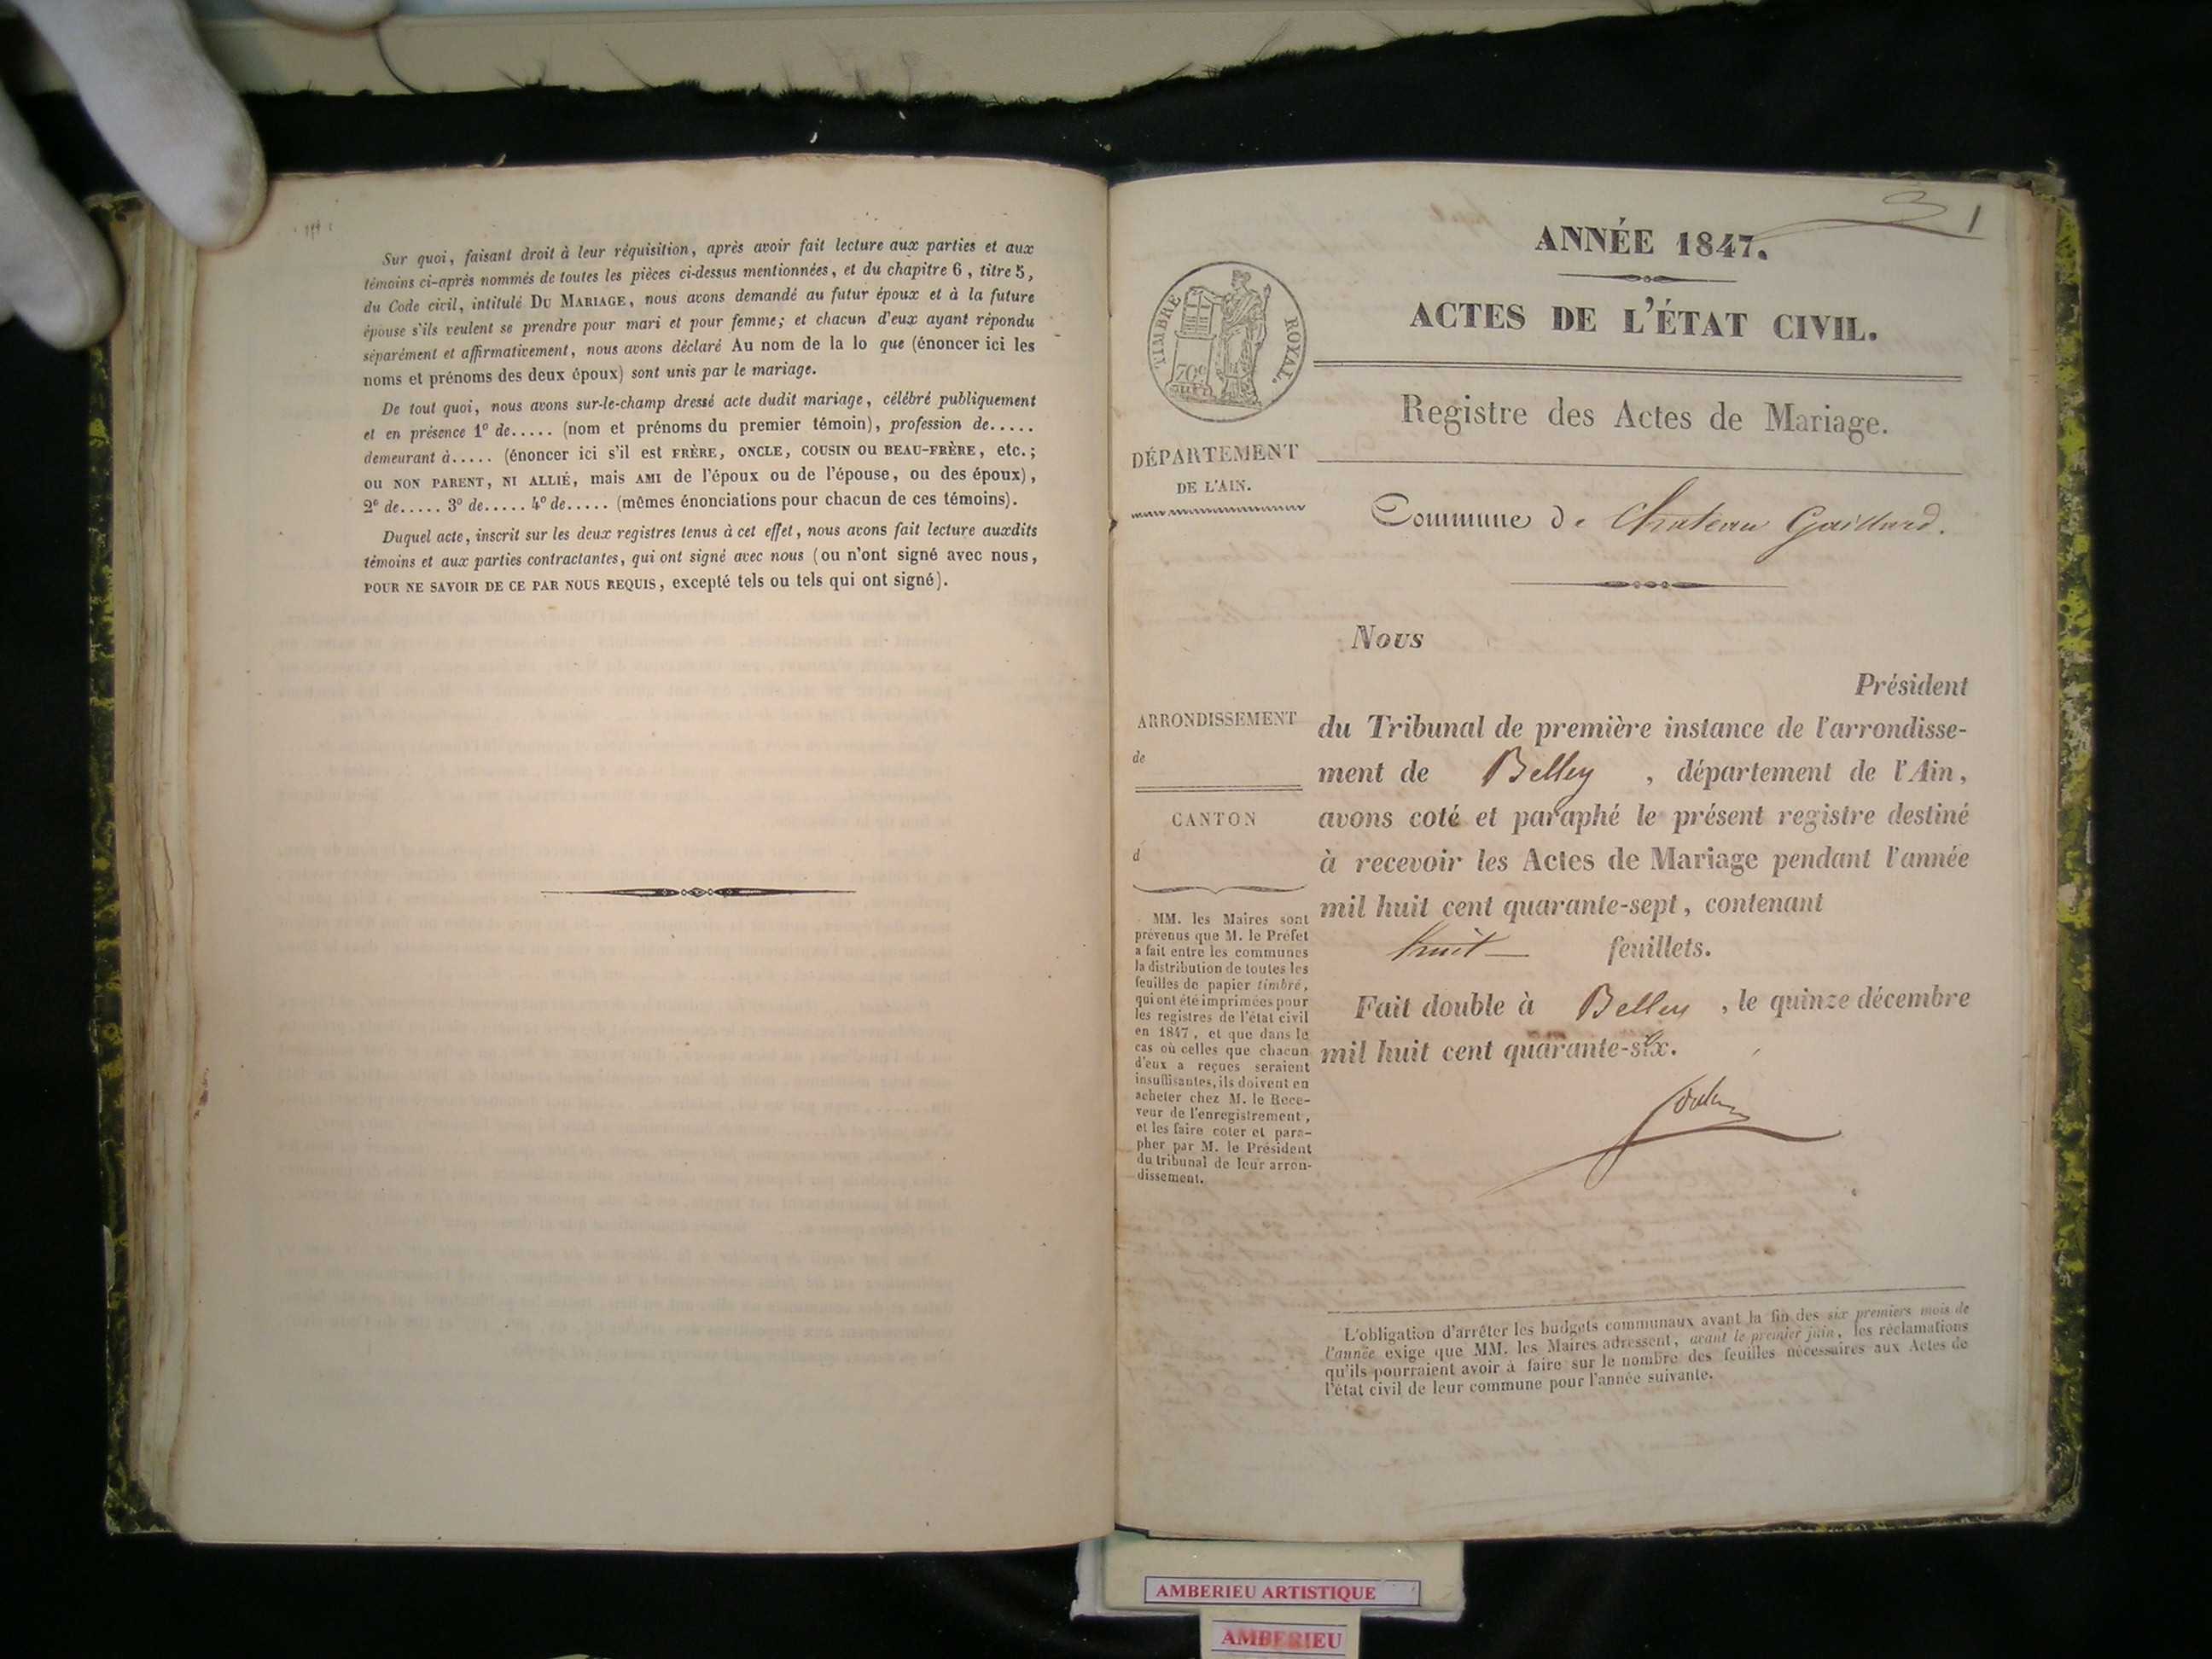 Sur quoi, faisant droit à leur réquisition, après avoir fait lecture aux parties et aux
témoins ci-après nommés de toutes les pièces ci-dessus mentionnées, et du chapitre 6, titre 5,
du Code civil, intitulé DU MARIAGE, nous avons demandé au futur époux et à la future
épouse s'ils veulent se prendre pour mari et pour femme; et chacun d'eux ayant répondu
séparément et affirmativement, nous avons déclaré Au nom de la lo que (énoncer ici les
noms et prénoms des deux époux) sont unis par le mariage.
De tout quoi, nous avons sur-le-champ dressé acte dudit mariage, célébré publiquement
et en présence 1º de..... (nom et prénoms du premier témoin), profession de.....
demeurant à..... (énoncer ici s'il est FRÈRE, ONCLE, COUSIN OU BEAU-FRÈRE, etc.;
OU NON PARENT, NI ALLIÉ, mais AMI de l'époux ou de l'épouse, ou des époux),
2º de..... 3º de..... 4º de..... (mêmes énonciations pour chacun de ces témoins).
Duquel acte, inscrit sur les deux registres tenus à cet effet, nous avons fait lecture auxdits
témoins et aux parties contractantes, qui ont signé avec nous (ou n'ont signé avec nous,
POUR NE SAVOIR DE CE PAR NOUS REQUIS, excepté tels ou tels qui ont signé).
3 1
ANNÉE 1847.
ACTES DE L'ÉTAT CIVIL.
TIMBRE ROYAL.
70c
Registre des Actes de Mariage.
DÉPARTEMENT
DE L'AIN.
Commune de Chateau Gaillard.
Nous
Président
du Tribunal de première instance de l'arrondisse-
ment de Belley, département de l'Ain,
avons coté et paraphé le présent registre destiné
à recevoir les Actes de Mariage pendant l'année
mil huit cent quarante-sept, contenant
huit feuillets.
Fait double à Belley, le quinze décembre
mil huit cent quarante-six.
ARRONDISSEMENT
de
CANTON
d
MM. les Maires sont
prévenus que M. le Préfet
a fait entre les communes
la distribution de toutes les
feuilles de papier timbré,
qui ont été imprimées pour
les registres de l'état civil
en 1847, et que dans le
cas où celles que chacun
d'eux a reçues seraient
insuffisantes, ils doivent en
acheter chez M. le Rece-
veur de l'enregistrement,
et les faire coter et para-
pher par M. le Président
du tribunal de leur arron-
dissement.
L'obligation d'arrêter les budgets communaux avant la fin des six premiers mois de
l'année exige que MM. les Maires adressent, avant le premier juin, les réclamations
qu'ils pourraient avoir à faire sur le nombre des feuilles nécessaires aux Actes de
l'état civil de leur commune pour l'année suivante.
AMBERIEU ARTISTIQUE
AMBERIEU